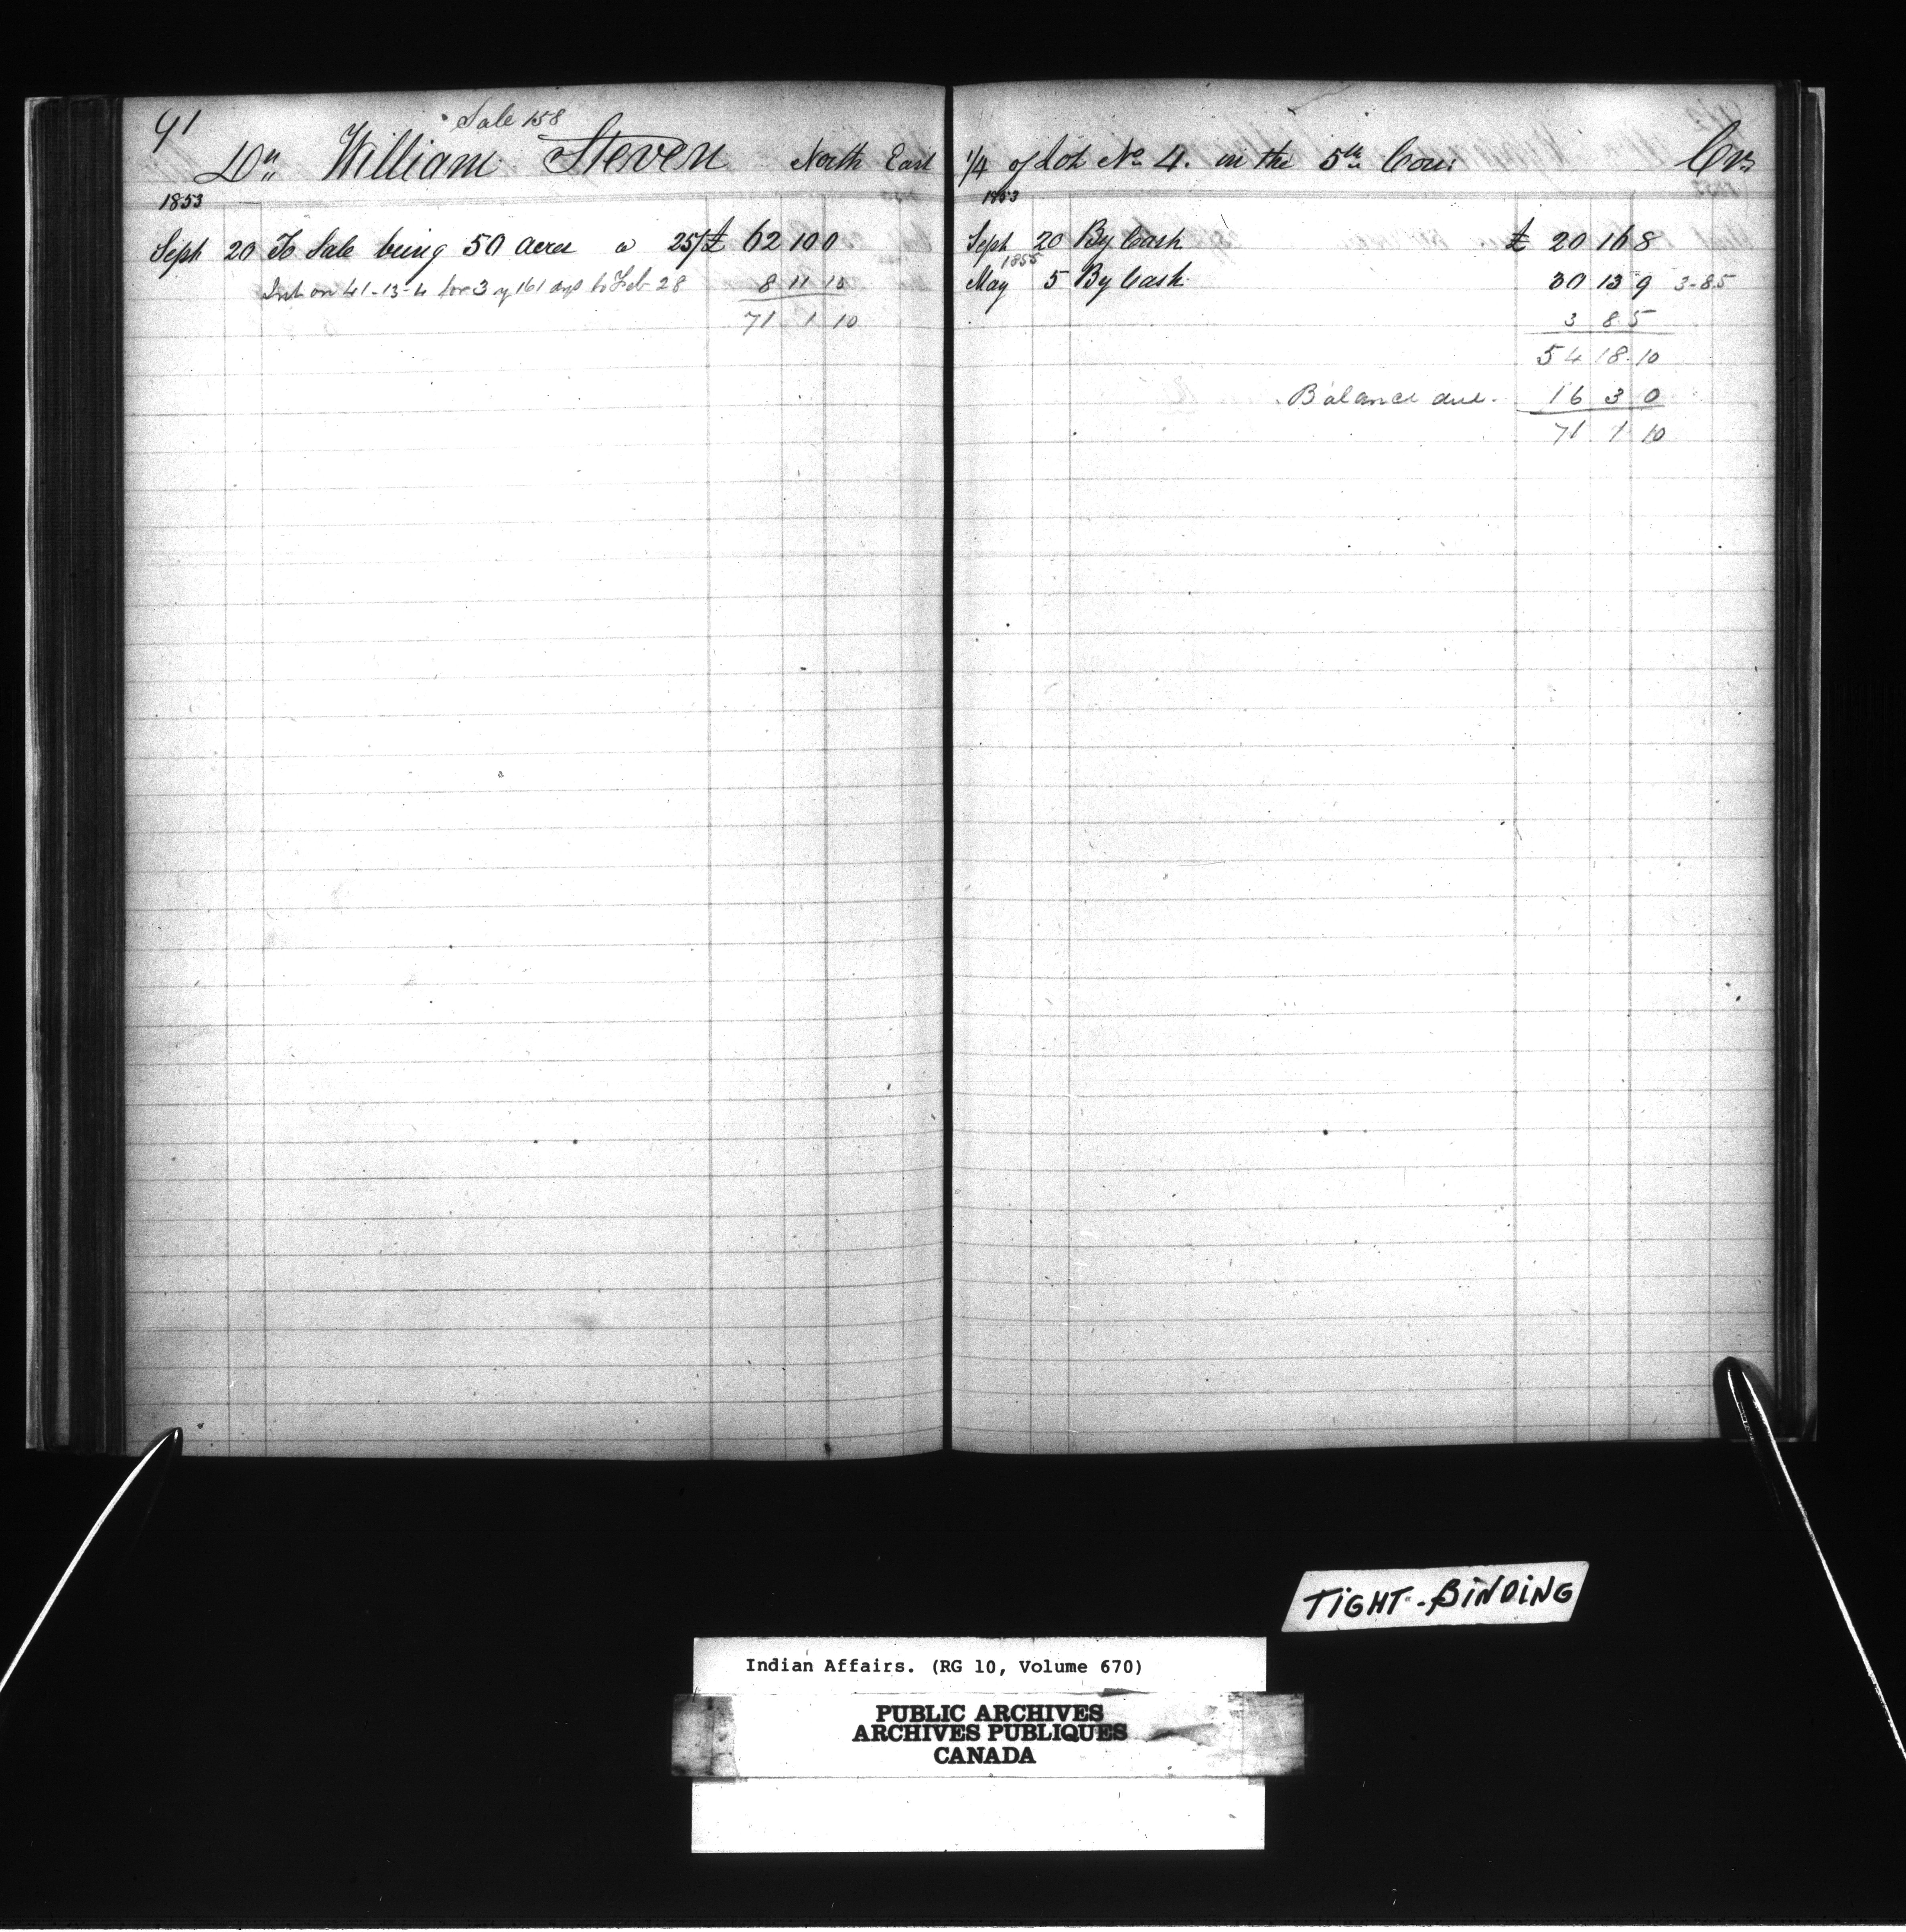 91
Sale 158
Dr. William Steven North East 1/4 of Lot No 4. in the 5th Con:
Cr.
1853
Sept 20 To Sale being 50 acres @ 25/ £ 62 10 0
Int on 41-13-4 for 3 y 161 dys to Feb 28 8 11 10
71 1 10
1853
Sept 20 By Cash £ 20 16 8
1855
May 5 By Cash 30 13 9 3-8-5
3 8 5
54 18 10
Balance due. 16 3 0
71 1 10
TIGHT-BINDING
Indian Affairs. (RG 10, Volume 670)
PUBLIC ARCHIVES
ARCHIVES PUBLIQUES
CANADA